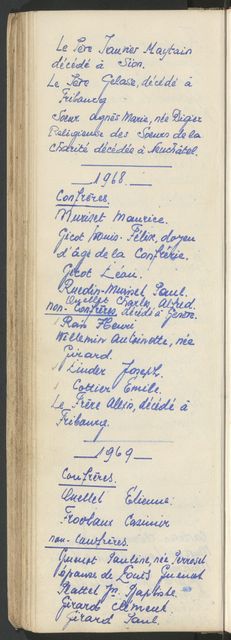 Le Père Tanner Maytain
décédé à Sion.
Le Père Gélase, décédé à
Fribourg
Soeur Agnès Marie, née Digier
Religieuse des Soeurs de la
Charité décédée à Neuchâtel.
1968.
Confrères.
Muriset Maurice.
Gicot Louis-Félix, doyen
d'âge de la Confrérie.
Gicot Léon.
Ruedin-Muriset Paul.
Quellet Charles Alfred.
non-Confrères, décédé à
Henri
Willemin Antoinette, née
Girard.
Linder Joseph.
Cottier Emile.
Le Frère Alexis, décédé à
Fribourg.
1969
Confrères.
Quellet Etienne.
Casimir
non-Confrères
Guenot Pauline, née Perroset
épouse de Louis Guenot
Rattet Jn Baptiste.
Girard Clément.
Girard Paul.